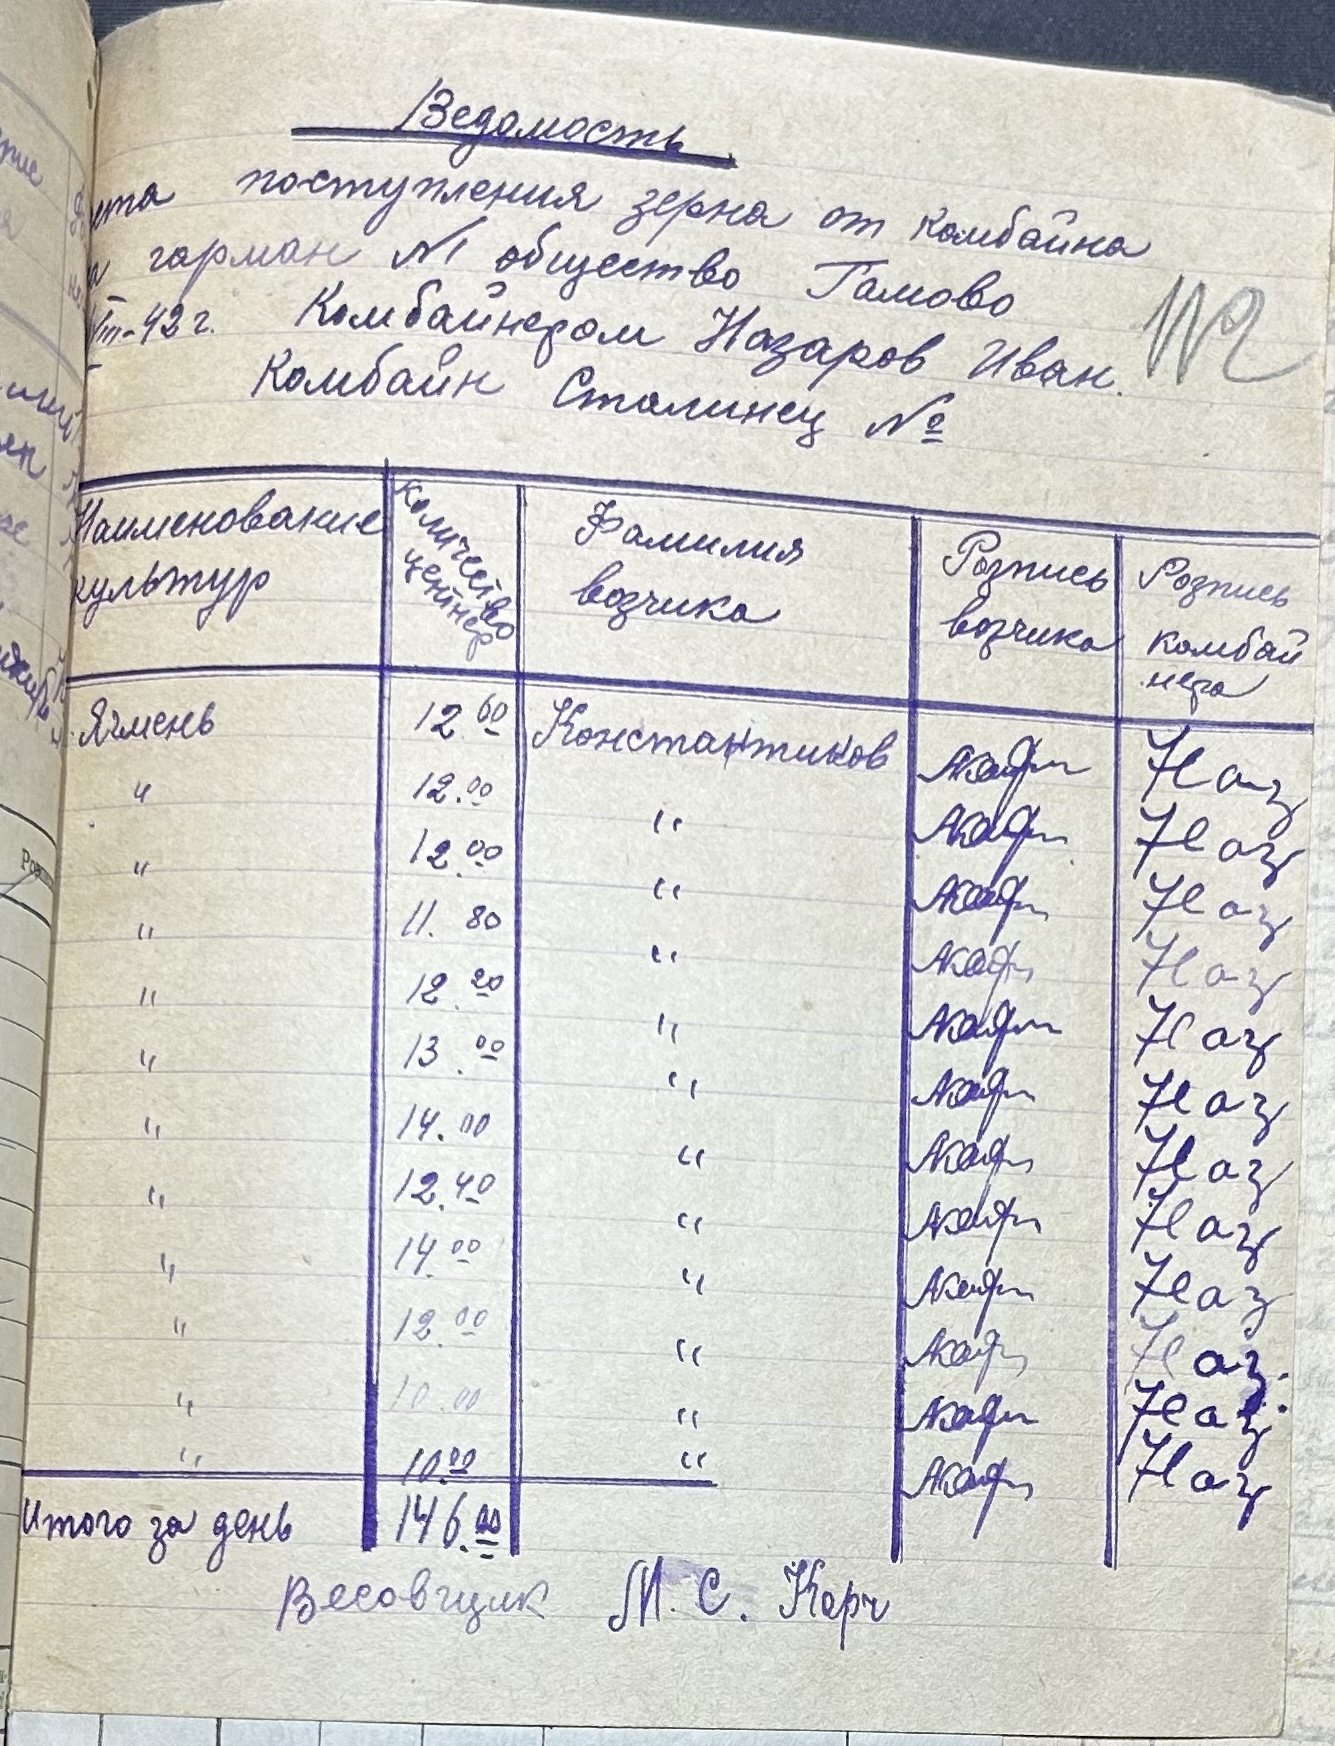 Ведомость
поступления зерна от комбайна
гарман №1 общество Гамово
VIII-42 г. Комбайнером Назаров Иван.
Комбайн Сталинец №
№2
Наименование культур Количество центнер Фамилия возчика Розпись возчика Розпись комбайнера
Ячмень 12.60 Константиков Наз
" 12.00 " Наз
" 12.00 " Наз
" 11.80 " Наз
" 12.20 " Наз
" 13.00 " Наз
" 14.00 " Наз
" 12.40 " Наз
" 14.00 " Наз
" 12.00 " Наз
" 10.00 " Наз
" 10.00 " Наз
Итого за день 146.00
Весовщик М. С. Керч